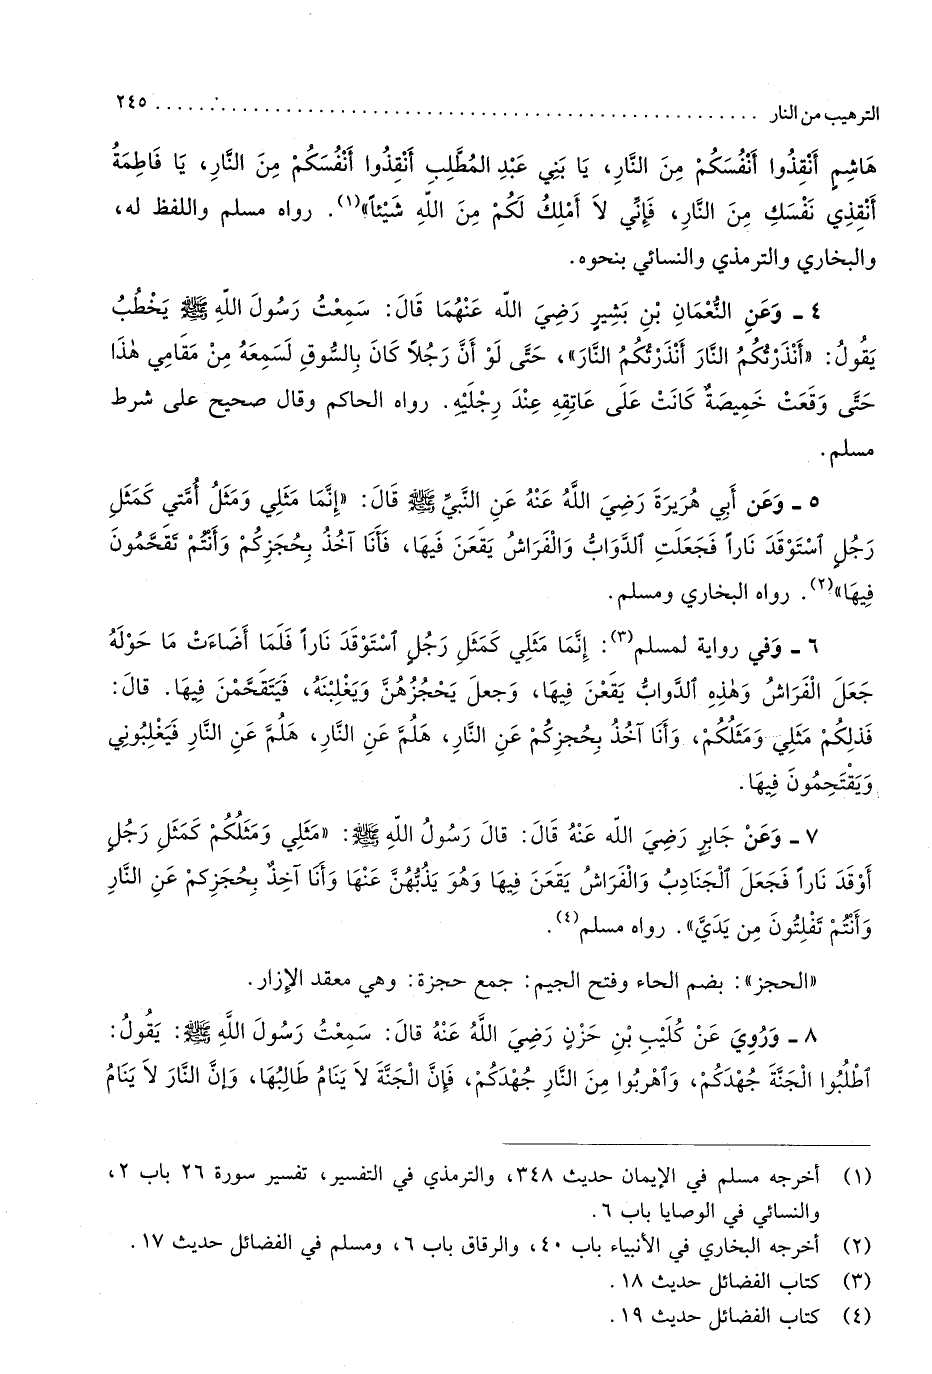 الترهيب من النار ........................................................ ٢٤٥
هَاشِمٍ أَنْقِذُوا أَنْفُسَكُمْ مِنَ النَّارِ، يَا بَنِي عَبْدِ المُطَّلِبِ أَنْقِذُوا أَنْفُسَكُمْ مِنَ النَّارِ، يَا فَاطِمَةُ
أَنْقِذِي نَفْسَكِ مِنَ النَّارِ، فَإِنِّي لاَ أَمْلِكُ لَكُمْ مِنَ اللّهِ شَيْئاً»(١). رواه مسلم واللفظ له،
والبخاري والترمذي والنسائي بنحوه.
٤ ـ وَعَنِ النُّعْمَانِ بْنِ بَشِيرٍ رَضِيَ اللّه عَنْهُمَا قَالَ: سَمِعْتُ رَسُولَ اللّهِ ﷺ يَخْطُبُ
يَقُولُ: «أَنْذَرْتُكُمُ النَّارَ أَنْذَرْتُكُمُ النَّارَ»، حَتَّى لَوْ أَنَّ رَجُلاً كَانَ بِالسُّوقِ لَسَمِعَهُ مِنْ مَقَامِي هٰذَا
حَتَّى وَقَعَتْ خَمِيصَةٌ كَانَتْ عَلَى عَاتِقِهِ عِنْدَ رِجْلَيْهِ. رواه الحاكم وقال صحيح على شرط
مسلم.
٥ ـ وَعَن أَبِي هُرَيرَةَ رَضِيَ اللَّهُ عَنْهُ عَنِ النَّبيِّ ﷺ قَالَ: «إِنَّمَا مَثَلِي وَمَثَلُ أُمَّتي كَمَثَلِ
رَجُلٍ ٱسْتَوْقَدَ نَاراً فَجَعَلَتِ ٱلدَّوَابُّ وَالْفَرَاشُ يَقَعَن فِيهَا، فَأَنَا آخُذُ بِحُجَزِكُمْ وَأَنْتُمْ تَقَحَّمُونَ
فِيهَا»(٢). رواه البخاري ومسلم.
٦ ـ وَفي رواية لمسلم(٣): إِنَّمَا مَثَلِي كَمَثَلِ رَجُلٍ ٱسْتَوْقَدَ نَاراً فَلَمَا أَضَاءَتْ مَا حَوْلَهُ
جَعَلَ الْفَرَاشُ وَهٰذِهِ ٱلدَّوابُّ يَقَعْنَ فِيهَا، وَجعلَ يَحْجُزُهُنَّ وَيَغْلِبْنَهُ، فَيَتَقَحَّمْنَ فِيهَا. قالَ:
فَذلِكُمْ مَثَلِي وَمَثَلُكُمْ، وَأَنَا آخُذُ بِحُجزِكُمْ عَنِ النَّارِ، هَلُمَّ عَنِ النَّارِ، هَلُمَّ عَنِ النَّارِ فَيَغْلِبُونِي
وَيَقْتَحِمُونَ فِيهَا.
٧ ـ وَعَنْ جَابِرٍ رَضِيَ اللّه عَنْهُ قَالَ: قالَ رَسُولُ اللّهِ ﷺ: «مَثَلِي وَمَثَلُكُمْ كَمَثَلِ رَجُلٍ
أَوْقَدَ نَاراً فَجَعَلَ ٱلْجَنَادِبُ وَالْفَرَاشُ يَقَعَن فِيهَا وَهُوَ يَذُبُّهُنَّ عَنْهَا وَأَنَا آخِذٌ بِحُجَزِكمْ عَنِ النَّارِ
وَأَنْتُمْ تَفْلِتُونَ مِن يَدَيَّ». رواه مسلم(٤).
«الحجز»: بضم الحاء وفتح الجيم: جمع حجزة: وهي معقد الإزار.
٨ ـ وَرُوِيَ عَنْ كُلَيْبِ بْنِ حَزْنٍ رَضِيَ اللَّهُ عَنْهُ قالَ: سَمِعْتُ رَسُولَ اللَّهِ ﷺ: يَقُولُ:
ٱطْلُبُوا الْجَنَّةَ جُهْدَكُمْ، وَٱهْرِبُوا مِنَ النَّارِ جُهْدَكُمْ، فَإِنَّ الْجَنَّةَ لاَ يَنَامُ طَالِبُهَا، وَإنَّ النَّارَ لاَ يَنَامُ
(١) أخرجه مسلم في الإيمان حديث ٣٤٨، والترمذي في التفسير، تفسير سورة ٢٦ باب ٢،
والنسائي في الوصايا باب ٦.
(٢) أخرجه البخاري في الأنبياء باب ٤٠، والرقاق باب ٦، ومسلم في الفضائل حديث ١٧.
(٣) كتاب الفضائل حديث ١٨.
(٤) كتاب الفضائل حديث ١٩.